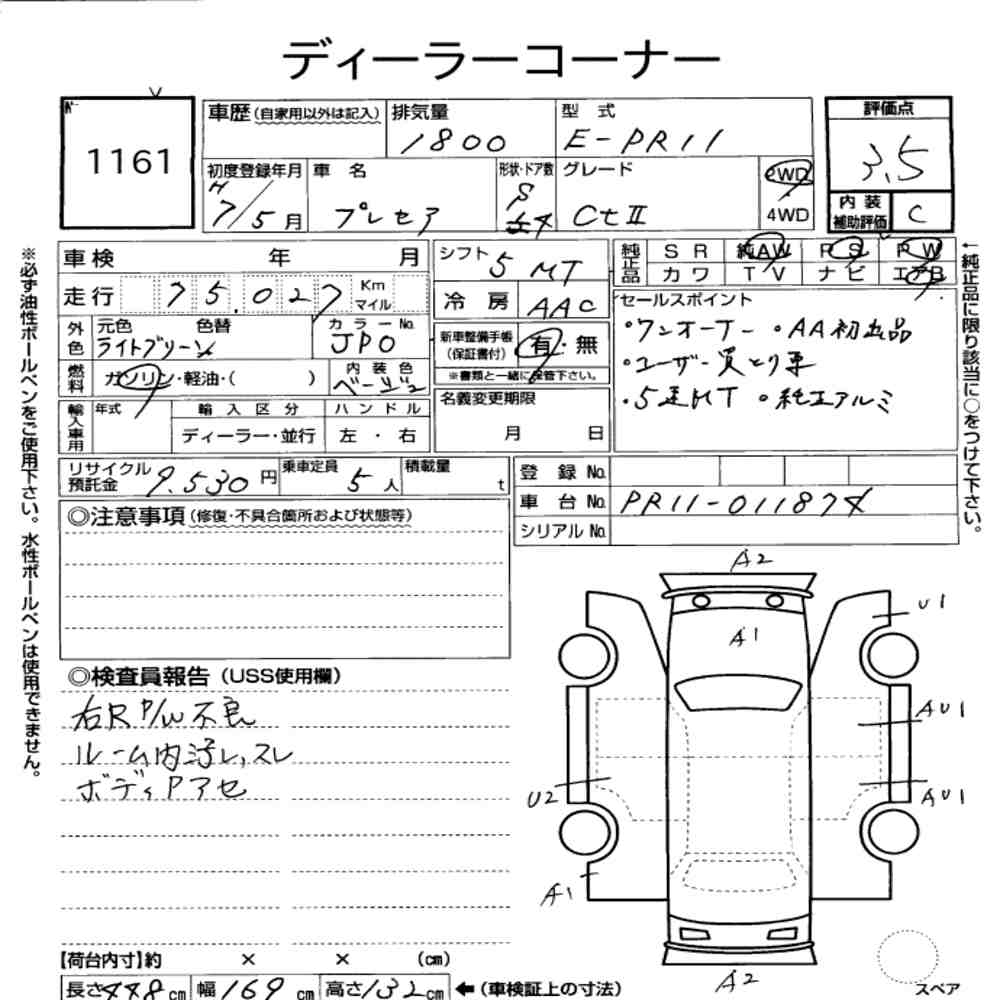 ディーラーコーナー
1161
車歴(自家用以外は記入)
排気量
1800
型 式
E-PR11
評価点
3.5
初度登録年月
H7/5月
車 名
プレセア
形状・ドア数
S
グレード
CtⅡ
2WD
4WD
内 装
補助評価
C
車検 年 月
シフト
5 MT
純正品
S R 純AW P S P W
カワ T V ナビ エアB
走行 75,027
Km
マイル
冷 房
AAC
セールスポイント
・ワンオーナー ・AA初出品
・ユーザー買とり車
・5速MT ・純正アルミ
外色
元色 色替
ライトグリーン
カラーNo.
JP0
新車整備手帳
(保証書付)
有・無
※書類と一緒に保管下さい。
燃料
ガソリン・軽油・( )
内 装 色
ベージュ
名義変更期限
月 日
輸入車用
年式
輸 入 区 分
ハ ン ド ル
ディーラー・並行
左 ・ 右
リサイクル
預託金
9,530円
乗車定員
5人
積載量
t
登 録 No.
車 台 No.
PR11-011874
シリアル No.
◎注意事項(修復・不具合箇所および状態等)
◎検査員報告(USS使用欄)
右R P/W不良
ルーム内汚レ、スレ
ボディPアセ
A2
A1
U1
AU1
AU1
U2
A1
A2
スペア
【荷台内寸】約 × × (cm)
長さ448cm 幅169cm 高さ132cm ←(車検証上の寸法)
※必ず油性ボールペンをご使用下さい。水性ボールペンは使用できません。
←純正品に限り該当に○をつけて下さい。